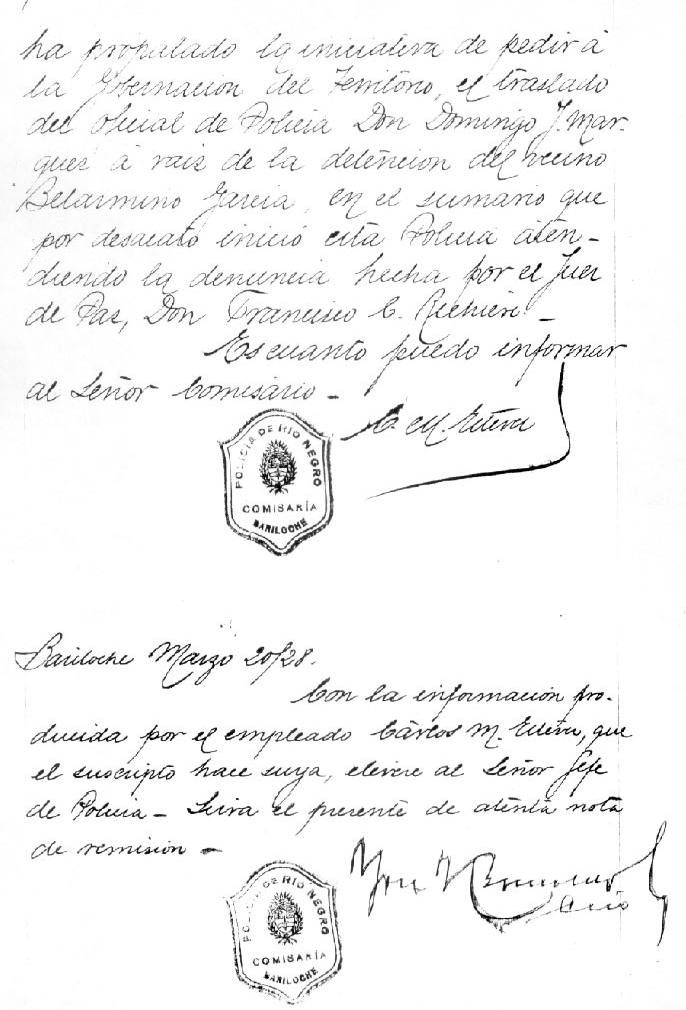 ha propalado la iniciativa de pedir á
la Gobernacion del Territorio, el traslado
del oficial de Policia Don Domingo J. Mar-
quez á raiz de la detencion del vecino
Belarmino Garcia, en el sumario que
por desacato inició esta Policia aten-
diendo la denuncia hecha por el Juez
de Paz, Don Francisco C.
Es cuanto puedo informar
al Señor Comisario -
C. M.
POLICIA DE RIO NEGRO
COMISARÍA
BARILOCHE
Bariloche Marzo 20/28.
Con la información pro-
ducida por el empleado Cárlos M. que
el suscripto hace suya, elevese al Señor Jefe
de Policia - Sirva el presente de atenta nota
de remisión -
POLICIA DE RIO NEGRO
COMISARÍA
BARILOCHE